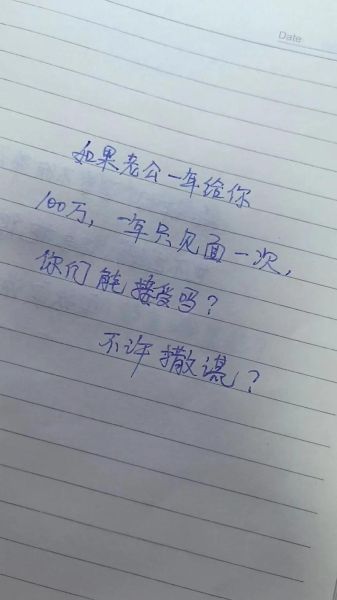 Date
如果老公一年给你
100万，一年只见面一次，
你们能接受吗？
不许撒谎？